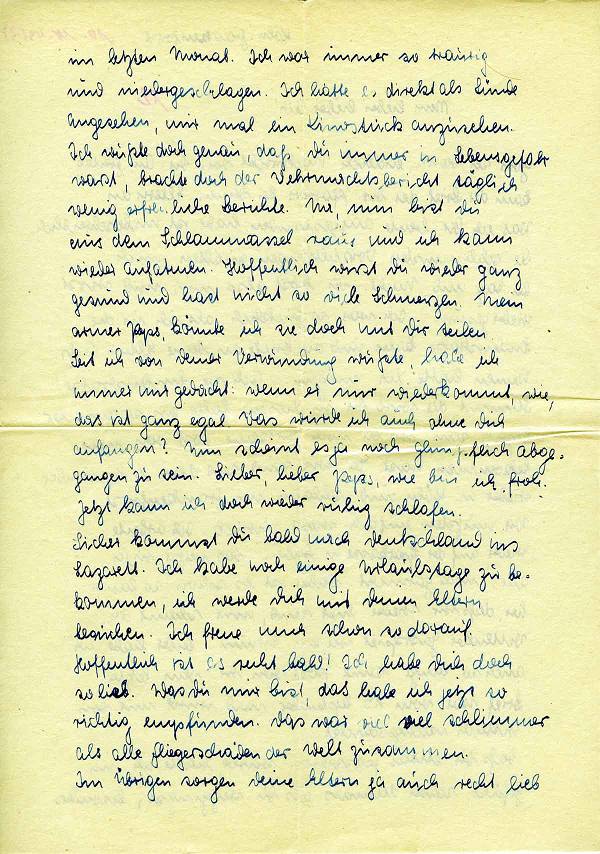 im letzten Monat. Ich war immer so traurig
und niedergeschlagen. Ich hätte es direkt als Sünde
angesehen, mir mal ein Kinostück anzusehen.
Ich wußte doch genau, daß du immer in Lebensgefahr
warst, brachte doch der Wehrmachtsbericht täglich
wenig erfreuliche Berichte. Na, nun bist du
aus dem Schlamassel raus und ich kann
wieder aufatmen. Hoffentlich wirst du wieder ganz
gesund und hast nicht so viele Schmerzen. Mein
armer Paps, könnte ich sie doch mit Dir teilen.
Seit ich von deiner Verwundung wußte, habe ich
immer nur gedacht: wenn er nur wiederkommt, wie,
das ist ganz egal. Was würde ich auch ohne dich
anfangen? Nun scheint es ja noch glimpflich abge-
gangen zu sein. Lieber, lieber Paps, wie bin ich froh.
Jetzt kann ich doch wieder ruhig schlafen.
Sicher kommst du bald nach Deutschland ins
Lazarett. Ich habe noch einige Urlaubstage zu be-
kommen, ich werde dich mit deinen Eltern
besuchen. Ich freue mich schon so darauf.
Hoffentlich ist es recht bald! Ich habe dich doch
so lieb. Was du mir bist, das habe ich jetzt so
richtig empfunden. Das war viel viel schlimmer
als alle Fliegerschäden der Welt zusammen.
Im übrigen sorgen deine Eltern ja auch recht lieb